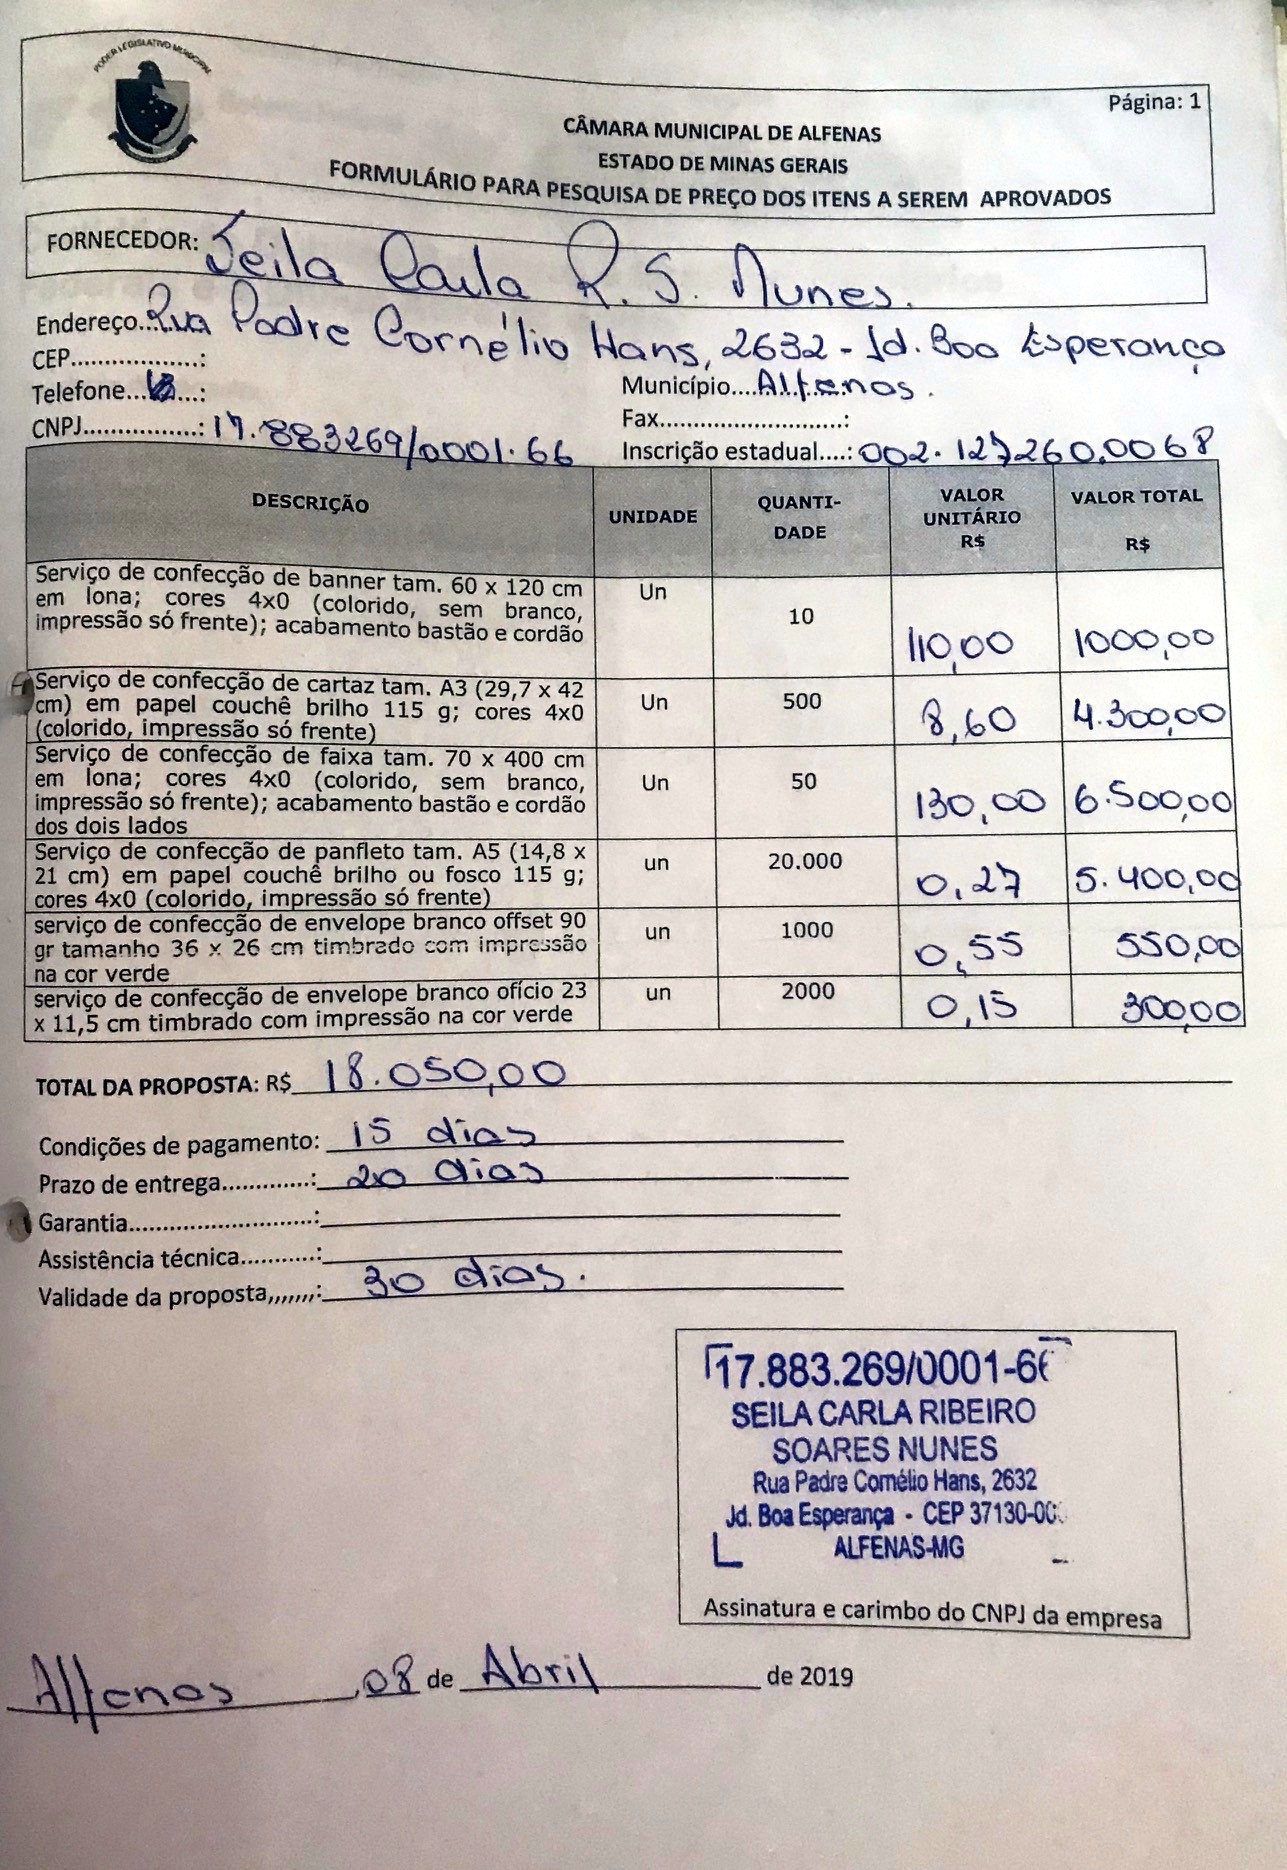 PODER LEGISLATIVO MUNICIPAL
Página: 1
CÂMARA MUNICIPAL DE ALFENAS
ESTADO DE MINAS GERAIS
FORMULÁRIO PARA PESQUISA DE PREÇO DOS ITENS A SEREM APROVADOS
FORNECEDOR: Seila Carla R. S. Nunes.
Endereço.. Rua Padre Cornélio Hans, 2632 - Jd. Boa Esperança
CEP..................:
Telefone.......:
Município.... Alfenas.
CNPJ.................: 17.883269/0001.66
Fax.........................:
Inscrição estadual....: 002.127260.0068
DESCRIÇÃO UNIDADE QUANTI-DADE VALOR UNITÁRIO R$ VALOR TOTAL R$
Serviço de confecção de banner tam. 60 x 120 cm
em lona; cores 4x0 (colorido, sem branco,
impressão só frente); acabamento bastão e cordão
Un 10 110,00 1000,00
Serviço de confecção de cartaz tam. A3 (29,7 x 42
cm) em papel couchê brilho 115 g; cores 4x0
(colorido, impressão só frente)
Un 500 8,60 4.300,00
Serviço de confecção de faixa tam. 70 x 400 cm
em lona; cores 4x0 (colorido, sem branco,
impressão só frente); acabamento bastão e cordão
dos dois lados
Un 50 130,00 6.500,00
Serviço de confecção de panfleto tam. A5 (14,8 x
21 cm) em papel couchê brilho ou fosco 115 g;
cores 4x0 (colorido, impressão só frente)
un 20.000 0,27 5.400,00
serviço de confecção de envelope branco offset 90
gr tamanho 36 x 26 cm timbrado com impressão
na cor verde
un 1000 0,55 550,00
serviço de confecção de envelope branco ofício 23
x 11,5 cm timbrado com impressão na cor verde
un 2000 0,15 300,00
TOTAL DA PROPOSTA: R$ 18.050,00
Condições de pagamento: 15 dias
Prazo de entrega.............: 20 dias
Garantia...........................:
Assistência técnica...........:
Validade da proposta,,,,,,,: 30 dias.
17.883.269/0001-66
SEILA CARLA RIBEIRO
SOARES NUNES
Rua Padre Cornélio Hans, 2632
Jd. Boa Esperança - CEP 37130-00
ALFENAS-MG
Assinatura e carimbo do CNPJ da empresa
Alfenas, 08 de Abril de 2019